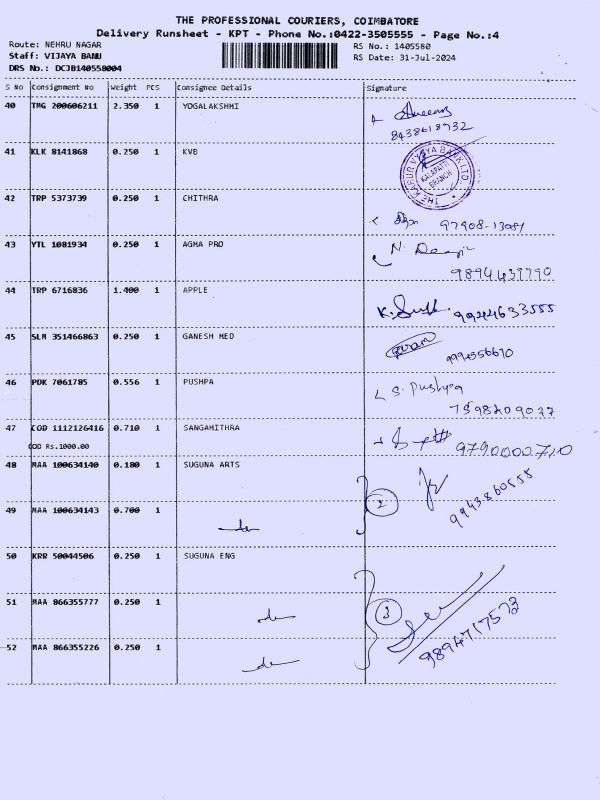 THE PROFESSIONAL COURIERS, COIMBATORE
Delivery Runsheet - KPT - Phone No.:0422-3505555 - Page No.:4
Route: NEHRU NAGAR RS No.: 1405580
Staff: VIJAYA BANU RS Date: 31-Jul-2024
DRS No.: DCJB140558004
S No Consignment No Weight PCS Consignee Details Signature
40 TMG 200606211 2.350 1 YOGALAKSHMI
8438618932
41 KLK 8141868 0.250 1 KVB
THE KARUR VYSYA BANK LTD.
KALAPATTI
BRANCH
42 TRP 5373739 0.250 1 CHITHRA
97908-13081
43 YTL 1081934 0.250 1 AGMA PRO
9894437790
44 TRP 6716836 1.400 1 APPLE
9944633555
45 SLM 351466863 0.250 1 GANESH MED
46 PDK 7061785 0.556 1 PUSHPA
S. Pushpa
7598209027
47 COD 1112126416 0.710 1 SANGAMITHRA
COD Rs.1000.00
9790000710
48 MAA 100634140 0.180 1 SUGUNA ARTS
9943860555
49 MAA 100634143 0.700 1
2
50 KRR 50044506 0.250 1 SUGUNA ENG
51 MAA 866355777 0.250 1
3
9894717573
52 MAA 866355226 0.250 1